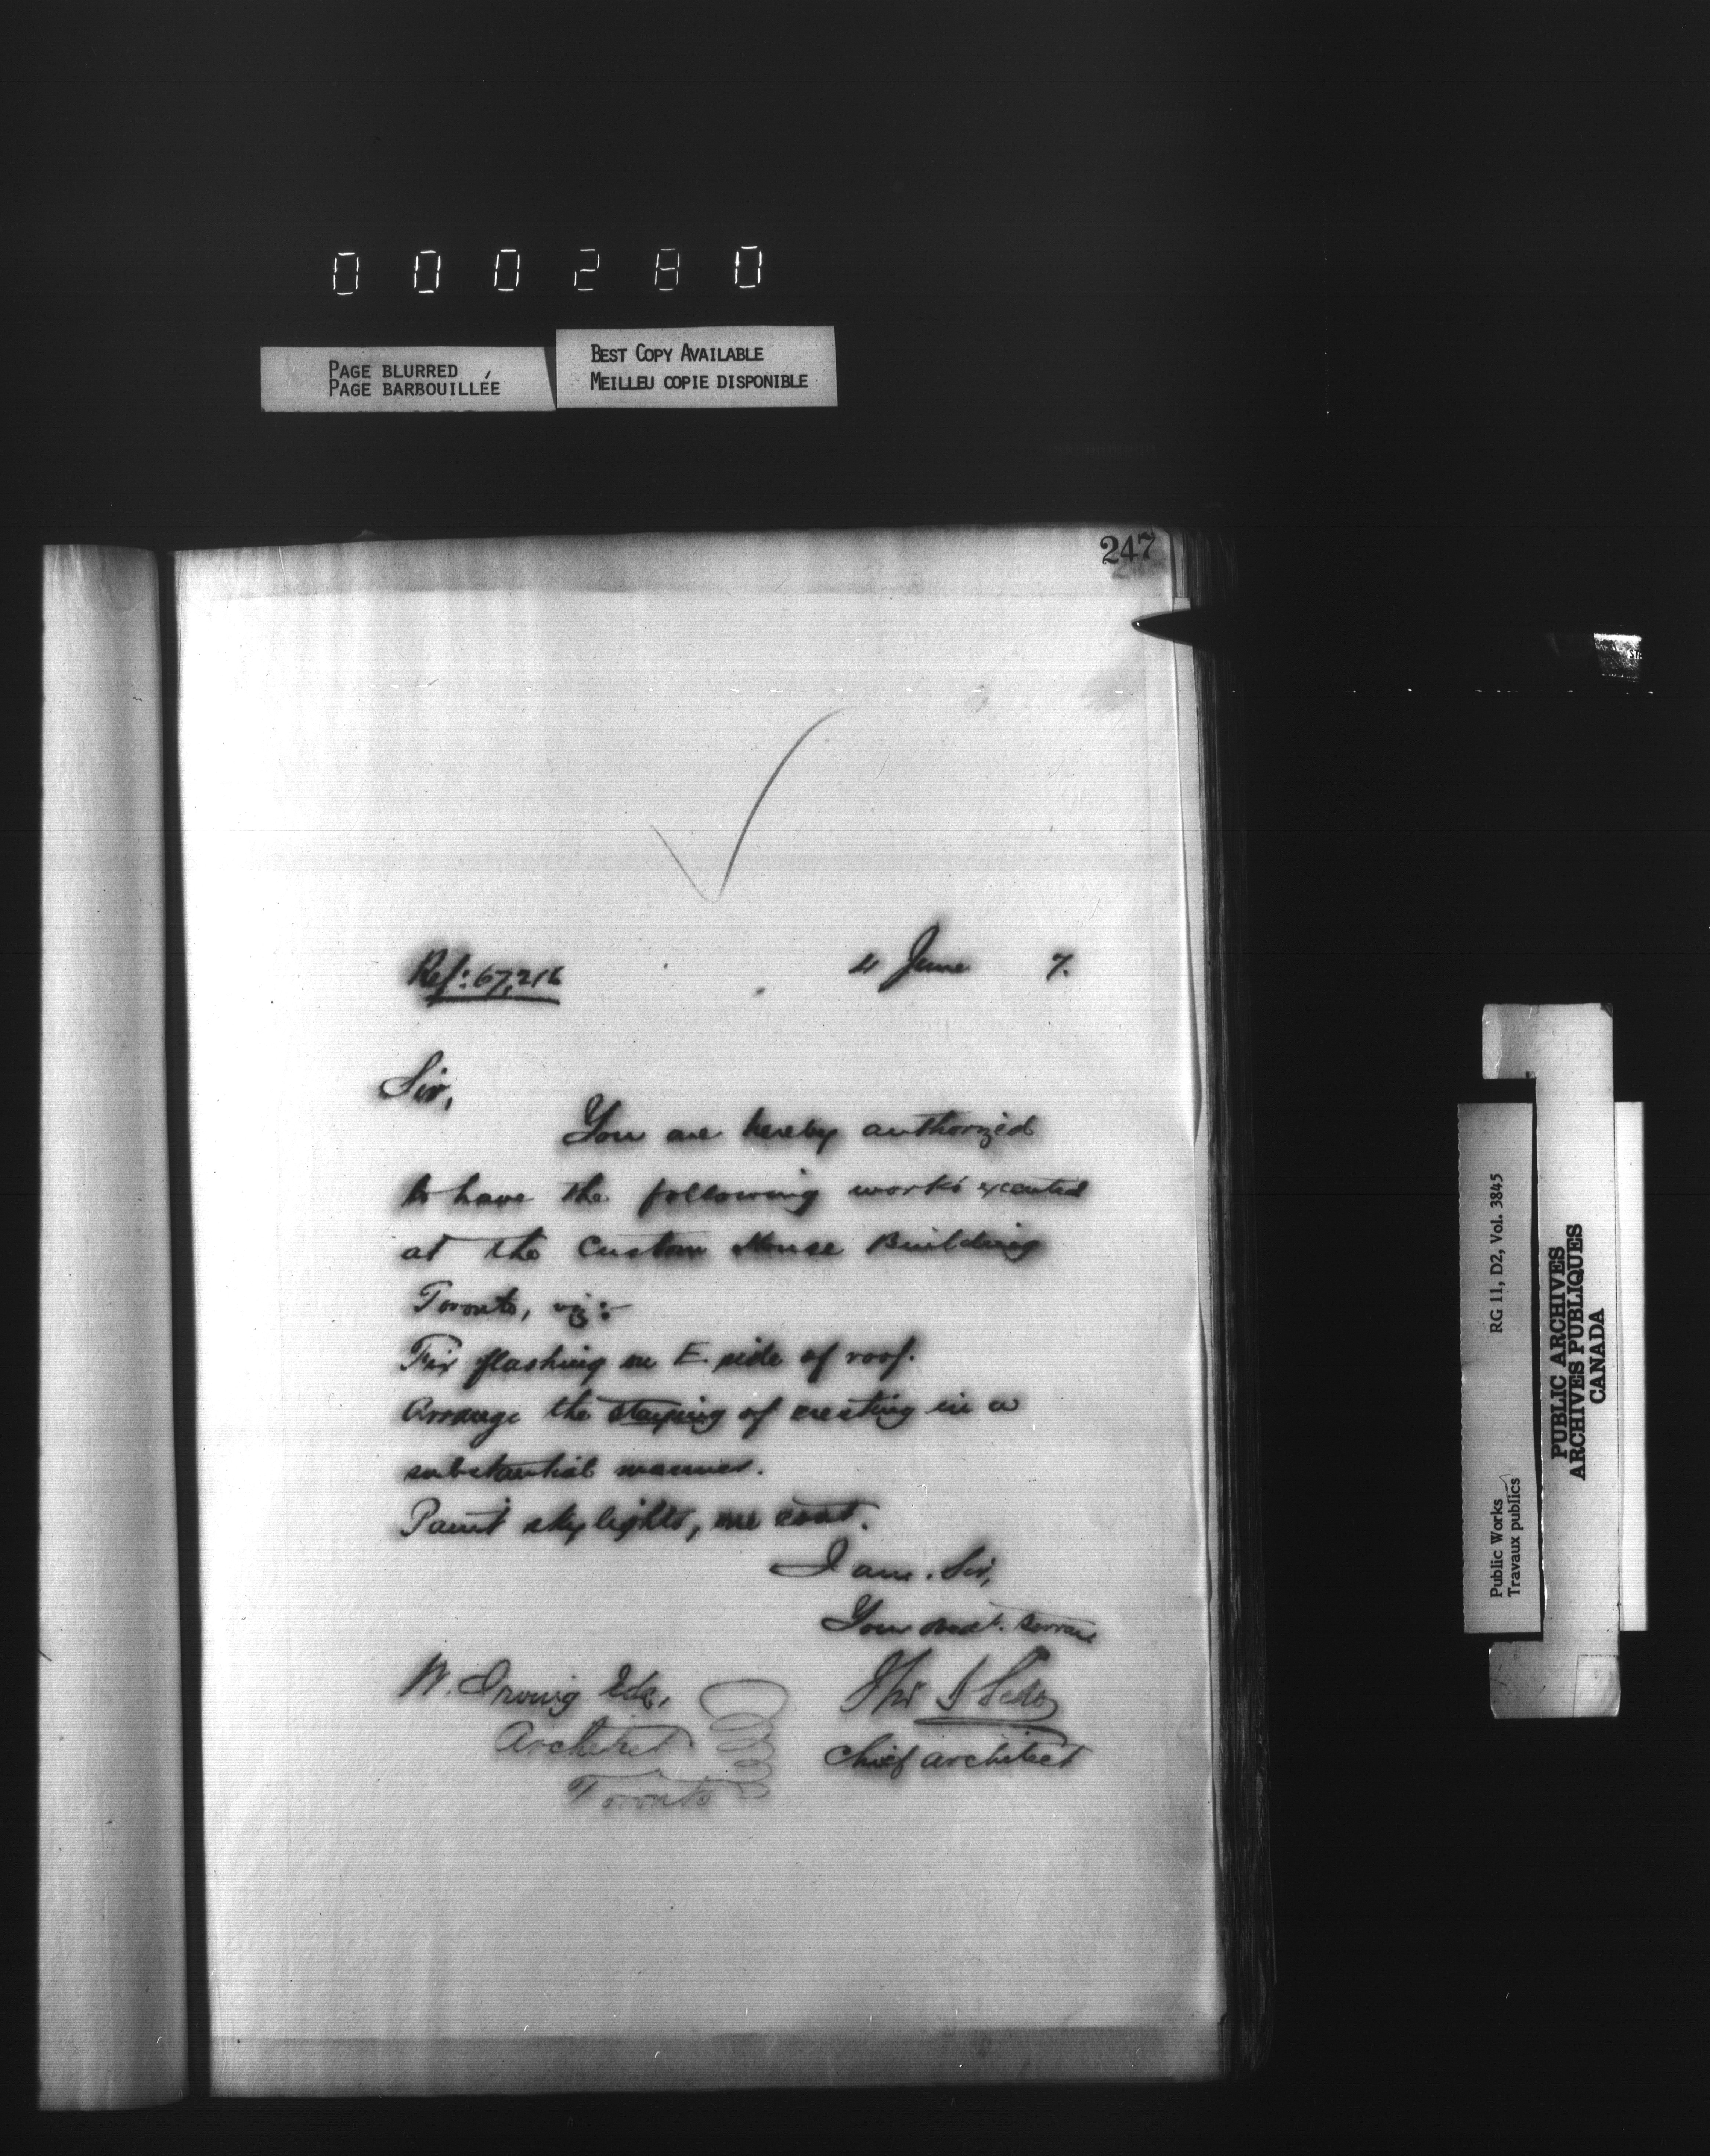 000280
PAGE BLURRED
PAGE BARBOUILLÉE
BEST COPY AVAILABLE
MEILLEU COPIE DISPONIBLE
247
Ref: 67,216
4 June 7.
Sir,
You are hereby authorized
to have the following works executed
at the Custom House Building
Toronto, viz:-
Fix flashing on E. side of roof.
Arrange the staying of cresting in a
substantial manner.
Paint skylights, one coat.
I am. Sir,
Your obedt.
W. Irving Esq.,
Architect
Toronto
Chief Architect
Public Works
Travaux publics
RG 11, D2, Vol. 3845
PUBLIC ARCHIVES
ARCHIVES PUBLIQUES
CANADA